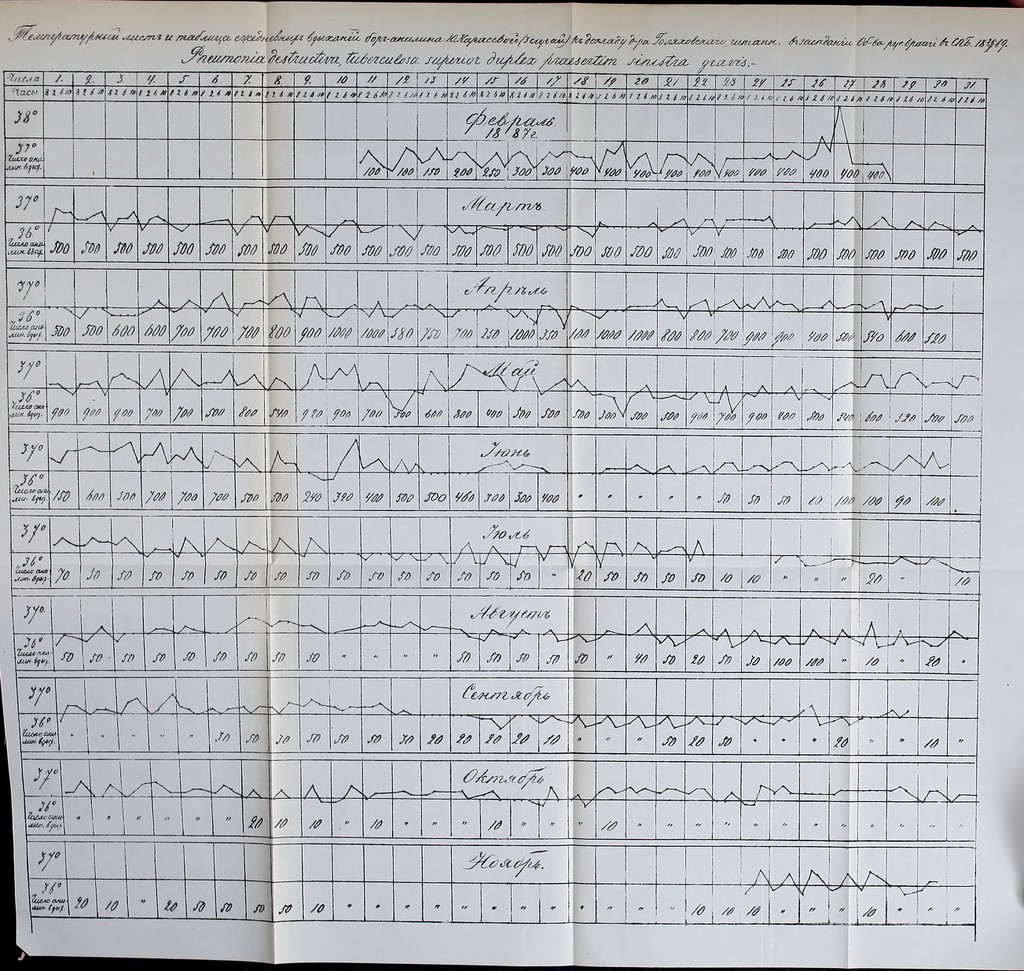 Температурный листъ и таблица ежедневныхъ вдыханій боръ-анилина къ докладу д-ра въ засѣданіи Об-ва въ СПБ. 18
Pneumonia destructiva tuberculosa superior duplex praesertim sinistra gravis.-
Числа 1. 2. 3. 4. 5 6. 7. 8. 9. 10 11 12 13 14 15 16 17 18 19 20 21 22 23 24 25 26 27 28 29 30 31.
Часы
38°
Февраль.
1887г.
37°
Число анилин. вдых. 100 100 150 200 250 300 300 400 400 400 400 400 400 400 400 400 400 400
37°
Мартъ
36°
Число анилин. вдых. 500 500 500 500 500 500 500 500 500 500 500 500 500 500 500 500 500 500 500 500 500 500 500 500 500 500 500 500 500 500 500
37°
Апрѣль
36°
Число анилин. вдых. 500 500 600 600 700 700 700 800 900 1000 1000 580 750 700 250 1000 350 100 1000 1000 800 800 700 900 900 400 500 540 600 520
37°
Май
36°
Число анилин. вдых. 900 900 900 700 700 500 800 540 920 900 700 500 600 800 400 500 500 500 300 500 500 900 700 900 400 500 540 600 520 500 500
37°
Іюнь
36°
Число анилин. вдых. 150 600 500 700 700 700 500 500 240 320 400 500 500 460 300 300 400 " " " " " 50 50 50 10 100 100 90 100
37°
Іюль
36°
Число анилин. вдых. 70 50 50 50 50 50 50 50 50 50 50 50 50 50 50 50 " 20 50 50 50 50 10 10 " " " 20 " 10
37°
Августъ
36°
Число анилин. вдых. 50 50 50 50 50 50 50 50 50 " " " " 50 50 50 50 50 " 40 50 20 50 30 100 100 " 10 " 20 "
37°
Сентябрь
36°
Число анилин. вдых. " " " " " 30 50 30 50 50 50 30 20 20 20 20 10 " " " 50 20 50 " " " 20 " " 10 "
37°
Октябрь
36°
Число анилин. вдых. " " " " " " 20 10 10 " 10 " " " 10 " " " 10 " " " " " " " " " " " "
37°
Ноябрь.
36°
Число анилин. вдых. 20 10 " 20 50 50 50 50 10 " " " " " " " " " " " " 10 10 10 " " " 10 " " "